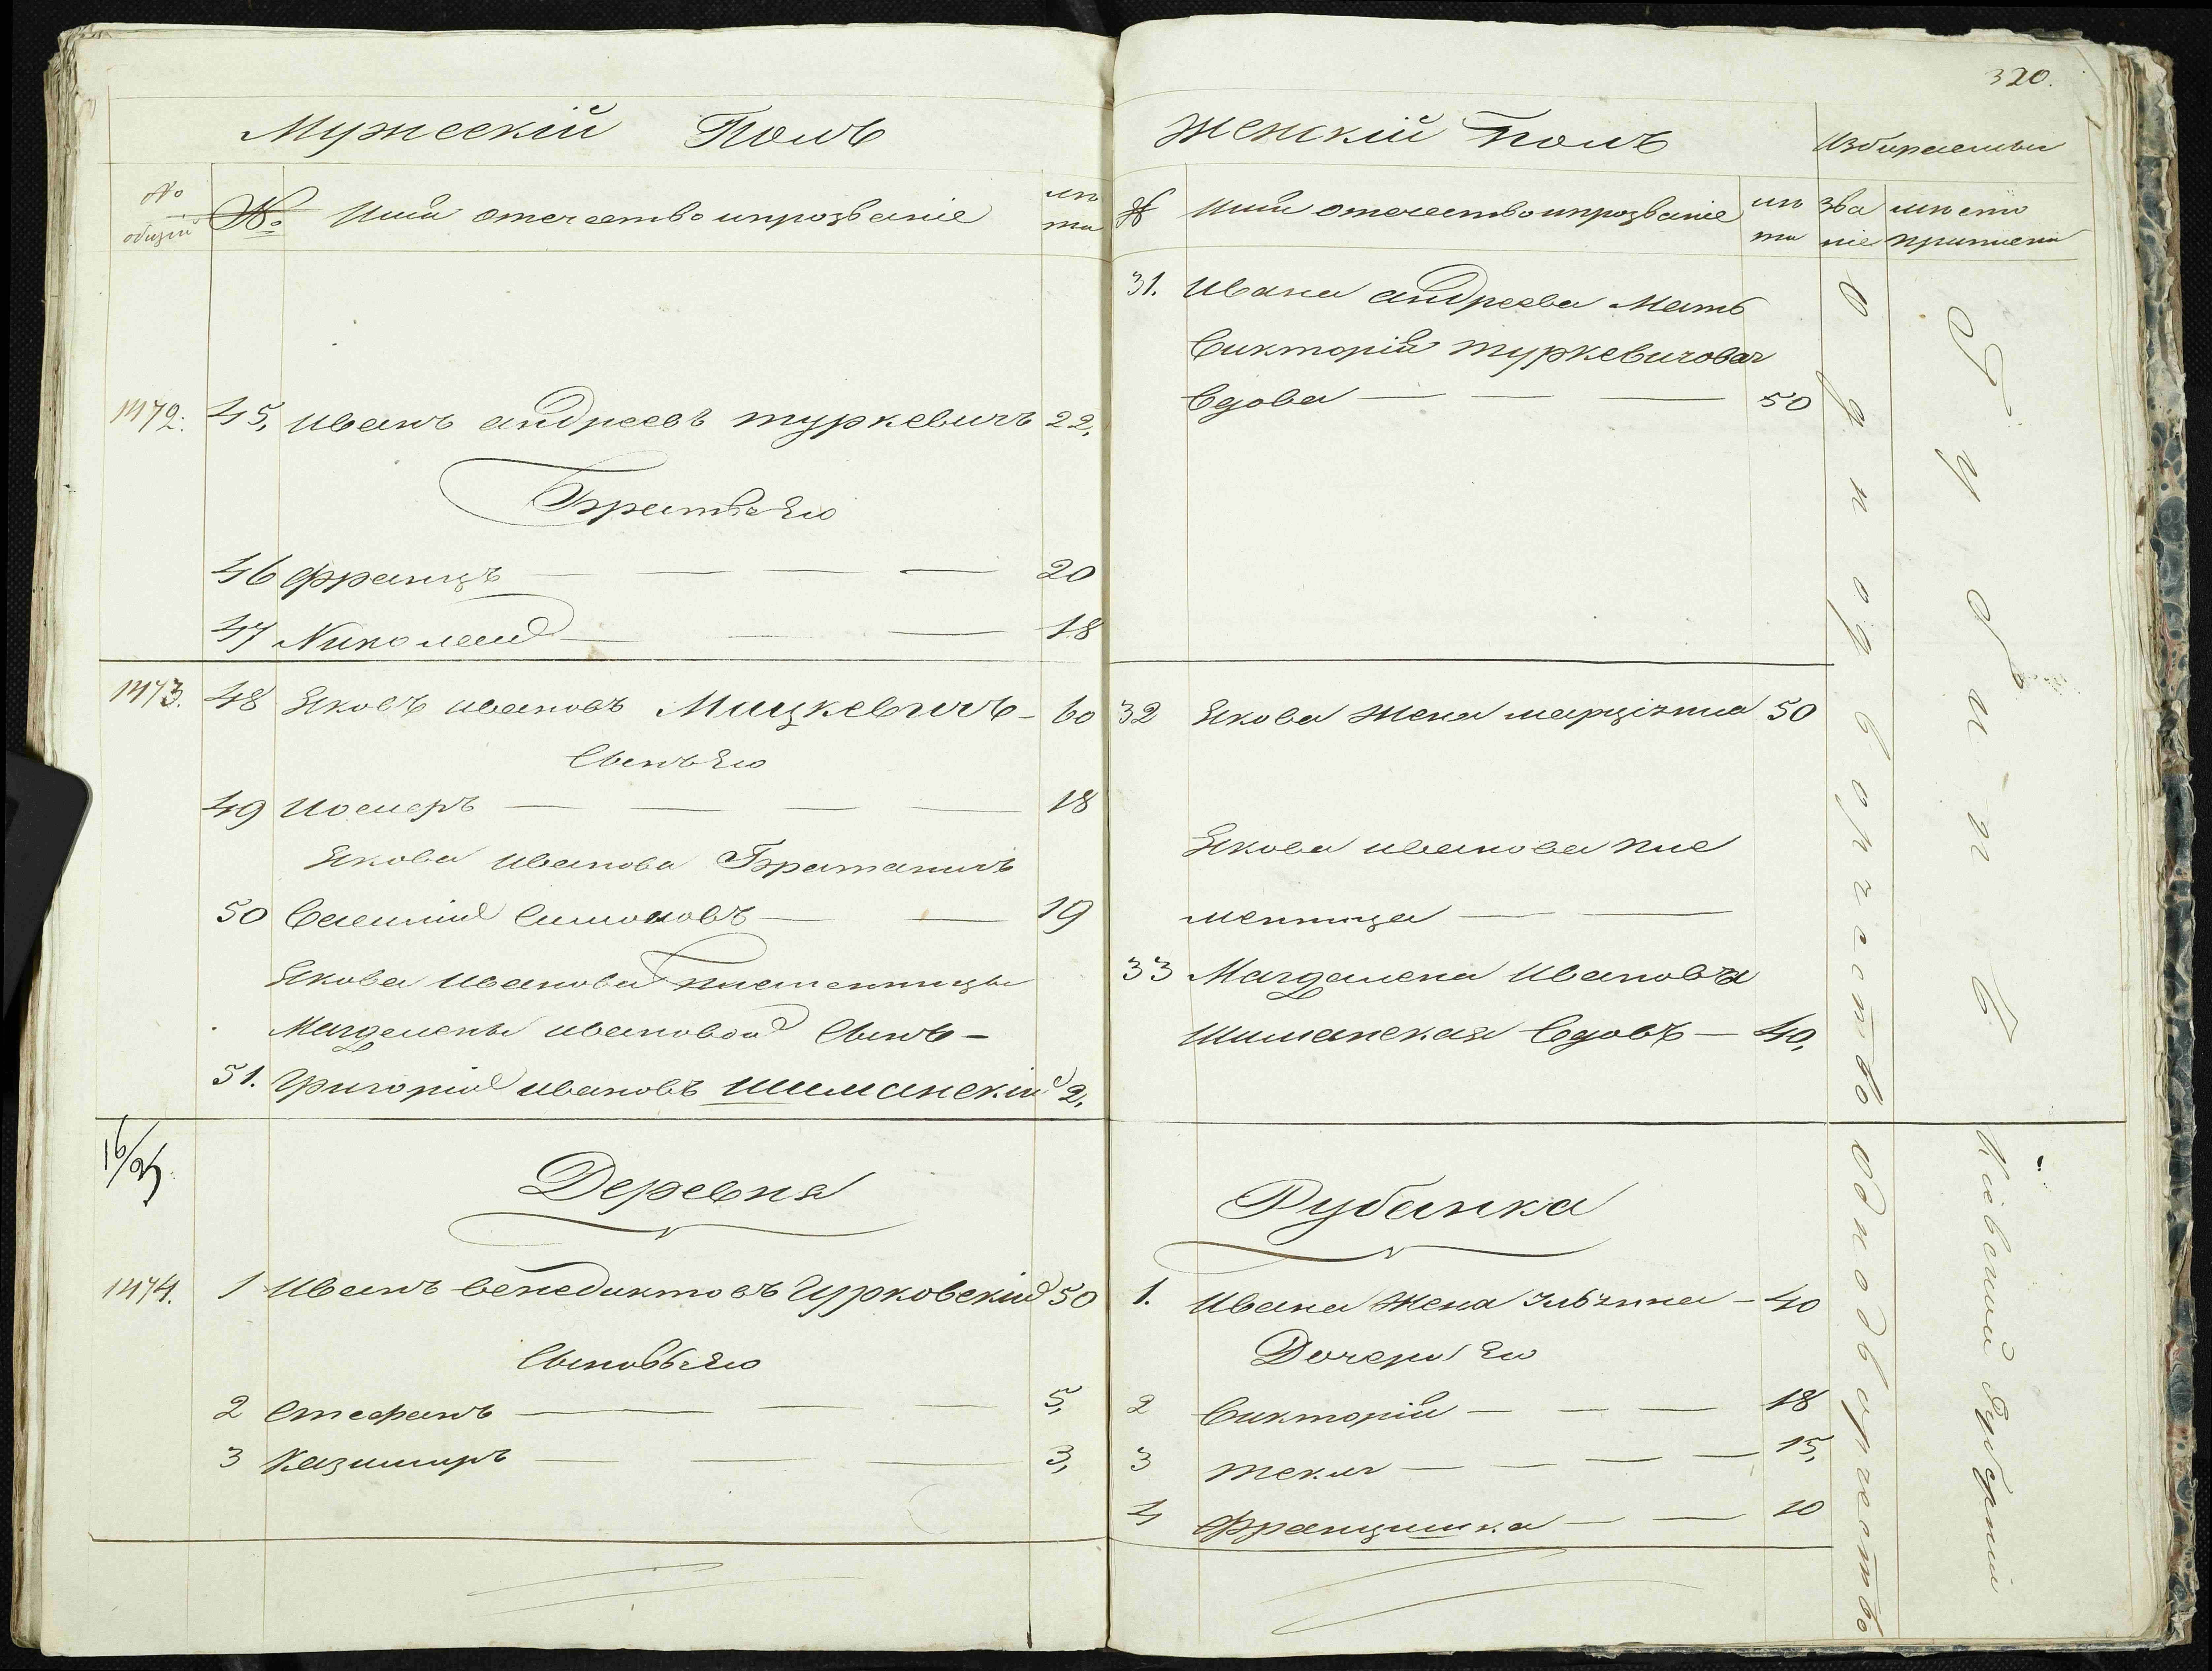 320.
Мужескій Полъ
№ общій
№
Имя отечество и прозваніе
лѣ
та
1472. 45, Иванъ Андреевъ Туркевичъ 22,
Братья Его
46 Францъ — — — — 20
47 Николай — — — 18
1473. 48 Яковъ Ивановъ Мицкевичъ - 60
Сынъ Его
49 Іосифъ — — — — 18
Якова Иванова Братаничъ
50 Василій Симоновъ — — 19
Якова Иванова племянницы
Магдалены Ивановой Сынъ -
51. Григорій Ивановъ Шиманскій 2,
16/
Деревня
1474. 1 Иванъ Бенедиктовъ Гурковскій 50
Сыновья Его
2 Стефанъ — — — 5,
3 Казимиръ — — — 3,
Женскій Полъ
Избираемыи
№
Имя отечество и прозваніе
лѣ
та
зва
ніе
мѣсто
приписки
31. Ивана Андреева Мать
Викторія Туркевичовая
Вдова — — — 50
32 Якова Жена 50
Якова Иванова пле
менница — —
33 Магдалена Иванова
Шиманская Вдовъ — 40,
Рубанка
1. Ивана Жена - 40
Дочери Его
2 Викторія — — — 18
3 Текля — — — — 15,
4 Францишка — — 10
Однодворчество
Однодворчество
Кіевской Губерніи